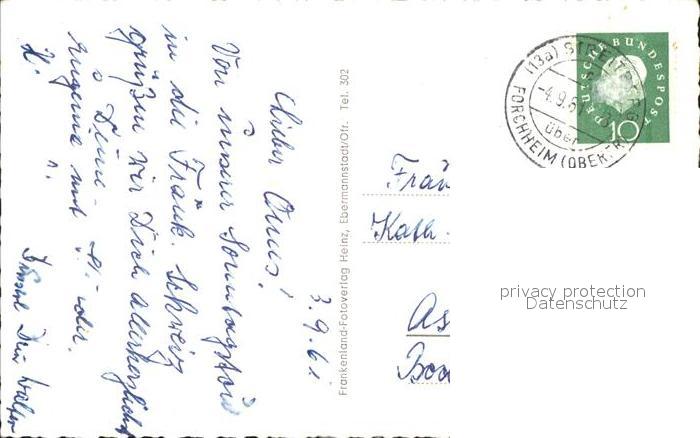 3.9.61
Lieber Onus!
Von unserer Sonntagstour
in die Fränk. Schweiz
grüßen wir Dich allerherzlichst
Deine
Eugenie und
K.
Dein Walter
Frankenland-Fotoverlag Heinz, Ebermannstadt/Ofr. Tel. 302
(13a) STREITBERG
-4.9.61
über
FORCHHEIM (OBER
DEUTSCHE BUNDESPOST
10
Frau
Kath.
As
privacy protection
Datenschutz